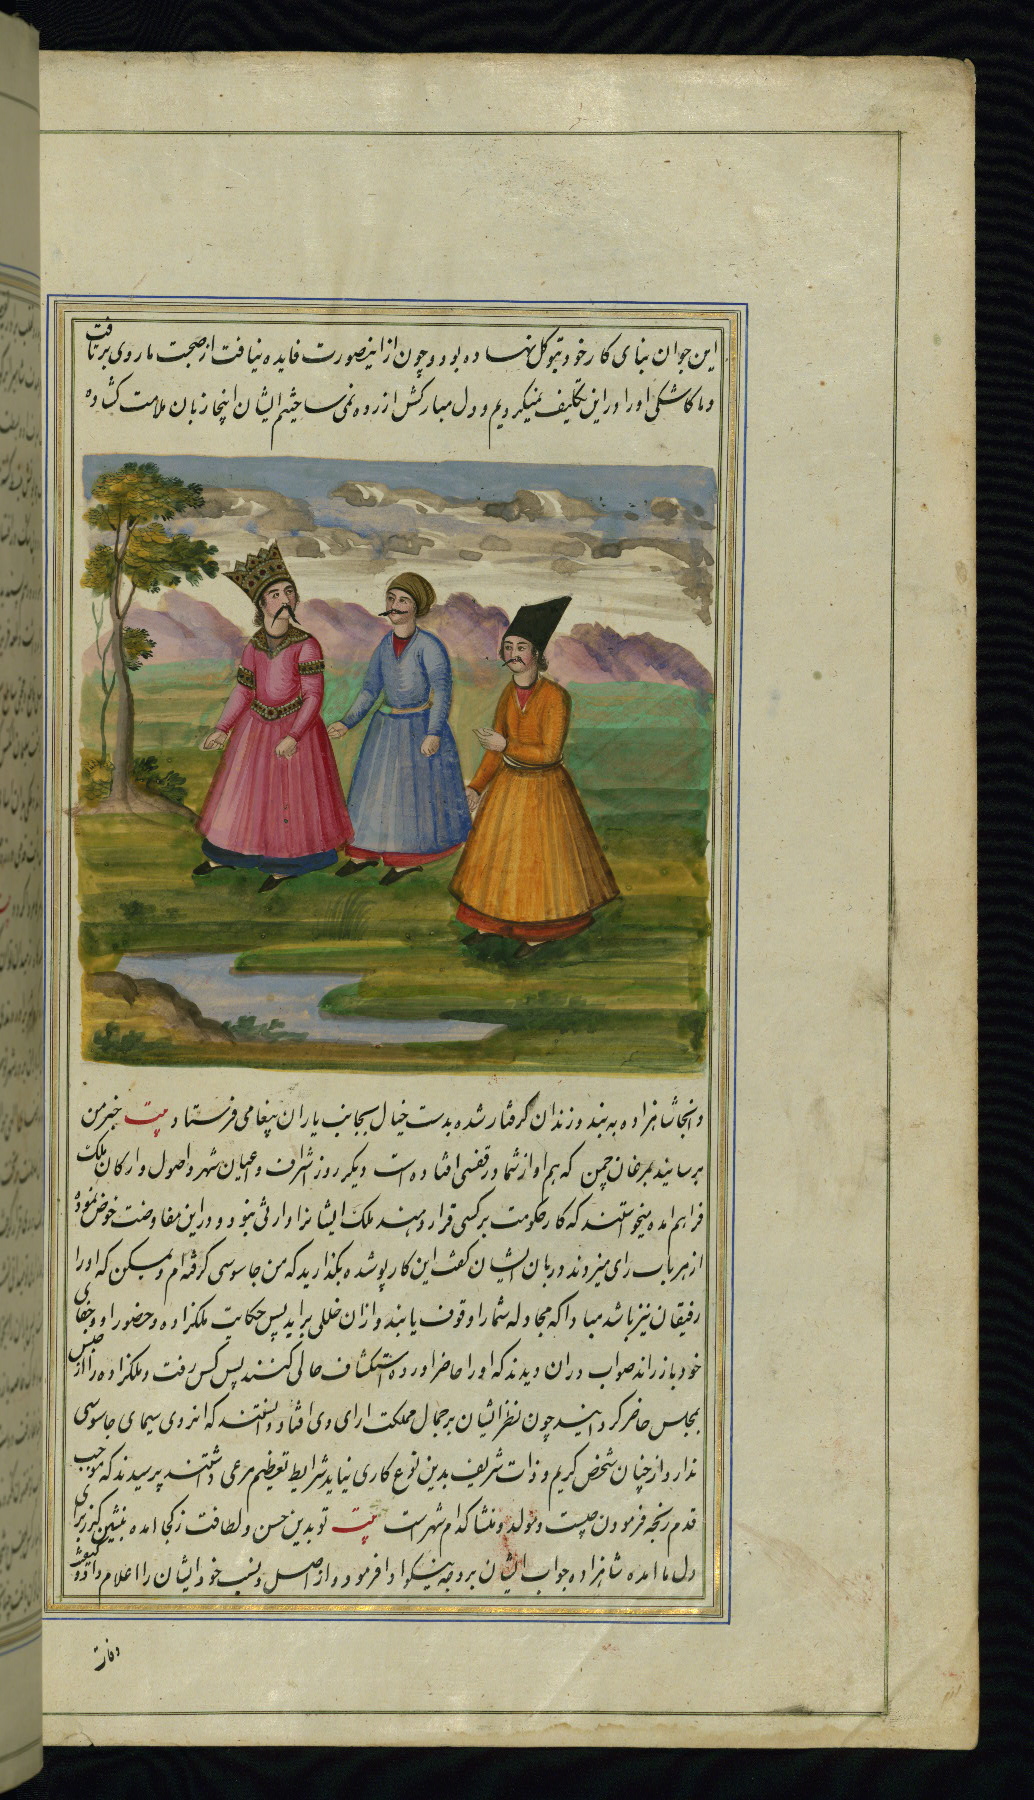 این جوان بنای کار خود بتوکل نهاده بود و چون از اینصورت فایده نیافت از صحبت ما روی برتافت
و ما کاشکی او را در این تکلیف نمیکردیم و دل مبارکش ازرده نمی ساختیم ایشان اینجا زبان ملامت کشاده
و انجا شاهزاده به بند و زندان گرفتار شده بدست خیال بجانب یاران پیغامی فرستاد بیت خبر من
برسانید بمرغان چمن که هم اواز شما در قفسی افتاده است دیکر روز اشراف و اعیان شهر و اصول و ارکان ملک
فراهم امده میخواستند که کار حکومت بر کسی قرار دهند ملک ایشانرا وارثی نبود و در این مفاوضت خوض نموده
از هر باب رای میزدند دربان ایشان گفت این کار پوشده بگذارید که من جاسوسی گرفته ام و ممکن که او را
رفیقان نیز باشد مبادا که مجادله شما را وقوف یابند و ازان خللی براید پس حکایت ملکزاده و حضور او و جفای
خود باز راند صواب دران دیدند که او را حاضر اورده استکشاف حالی کنند پس کس رفت و ملکزاده را از حبس
بمجلس حاضر کردانید چون نظر ایشان بر جمال مملکت ارای وی افتاد دانستند که از روی سیمای جاسوسی
ندارد از چنان شخص کریم و ذات شریف بدین نوع کاری نیاید شرایط تعظیم مرعی داشتند پرسیدند که موجب
قدم رنجه فرمودن چیست و مولد و منشا کدام شهر است بیت تو بدین حسن و لطافت ز کجا امده بنشین کز برای
دل ما امده شاهزاده جواب ایشان بر وجه نیکو ادا فرمود و از اصل و نسب خود ایشان را اعلام داده کیفیت
وفات